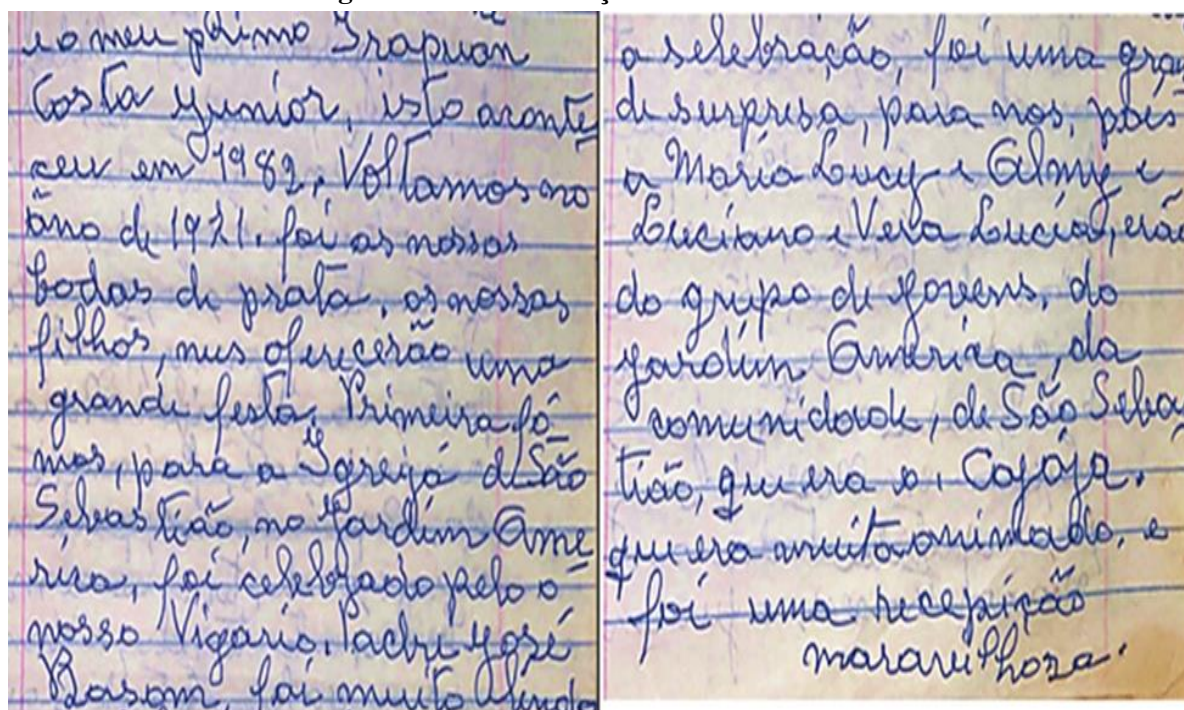 meu primo Irapuan
Costa Yunior, isto aconte
ceu em 1982, Voltamos no
ano de 1971. foi as nossas
bodas de prata, os nossos
filhos, nus oferecerão uma
grande festa, Primeira fo
mos, para a Igreja de São
Sebastião, no Yardim Ame
rica, foi celebrado pelo o
nosso Vigario, Padre Yosé
foi muito linda
a selebração, foi uma gran
de surpresa, para nos, pois
a Maria Lucy e Almy e
Luciano e Vera Lucia, erão
do grupo de Yovens, do
Yardim America, da
comunidade, de São Sebas
tião, que era o, Cajója.
que era muito animado, e
foi uma recepição
maravilhoza.